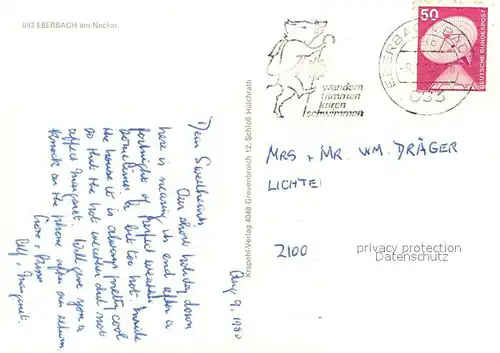 693 EBERBACH am Neckar
50
DEUTSCHE BUNDESPOST
EBERBACH
wandern
trimmen
kuren
schwimmen
Krapohl-Verlag 4048 Grevenbroich 12, Schloß Hülchrath
Aug 9, 1980
Dear Sweethearts
Our short holiday down
here is nearing its end after a
fortnight of perfect weather
sometimes a bit too hot. Inside
the house it is always pretty cool
so that the hot weather did not
affect Margaret. Will give you a
knock on the phone after our return.
Love
Margaret.
MRS + MR. WM. DRÄGER
LICHTE
2100
privacy protection
Datenschutz